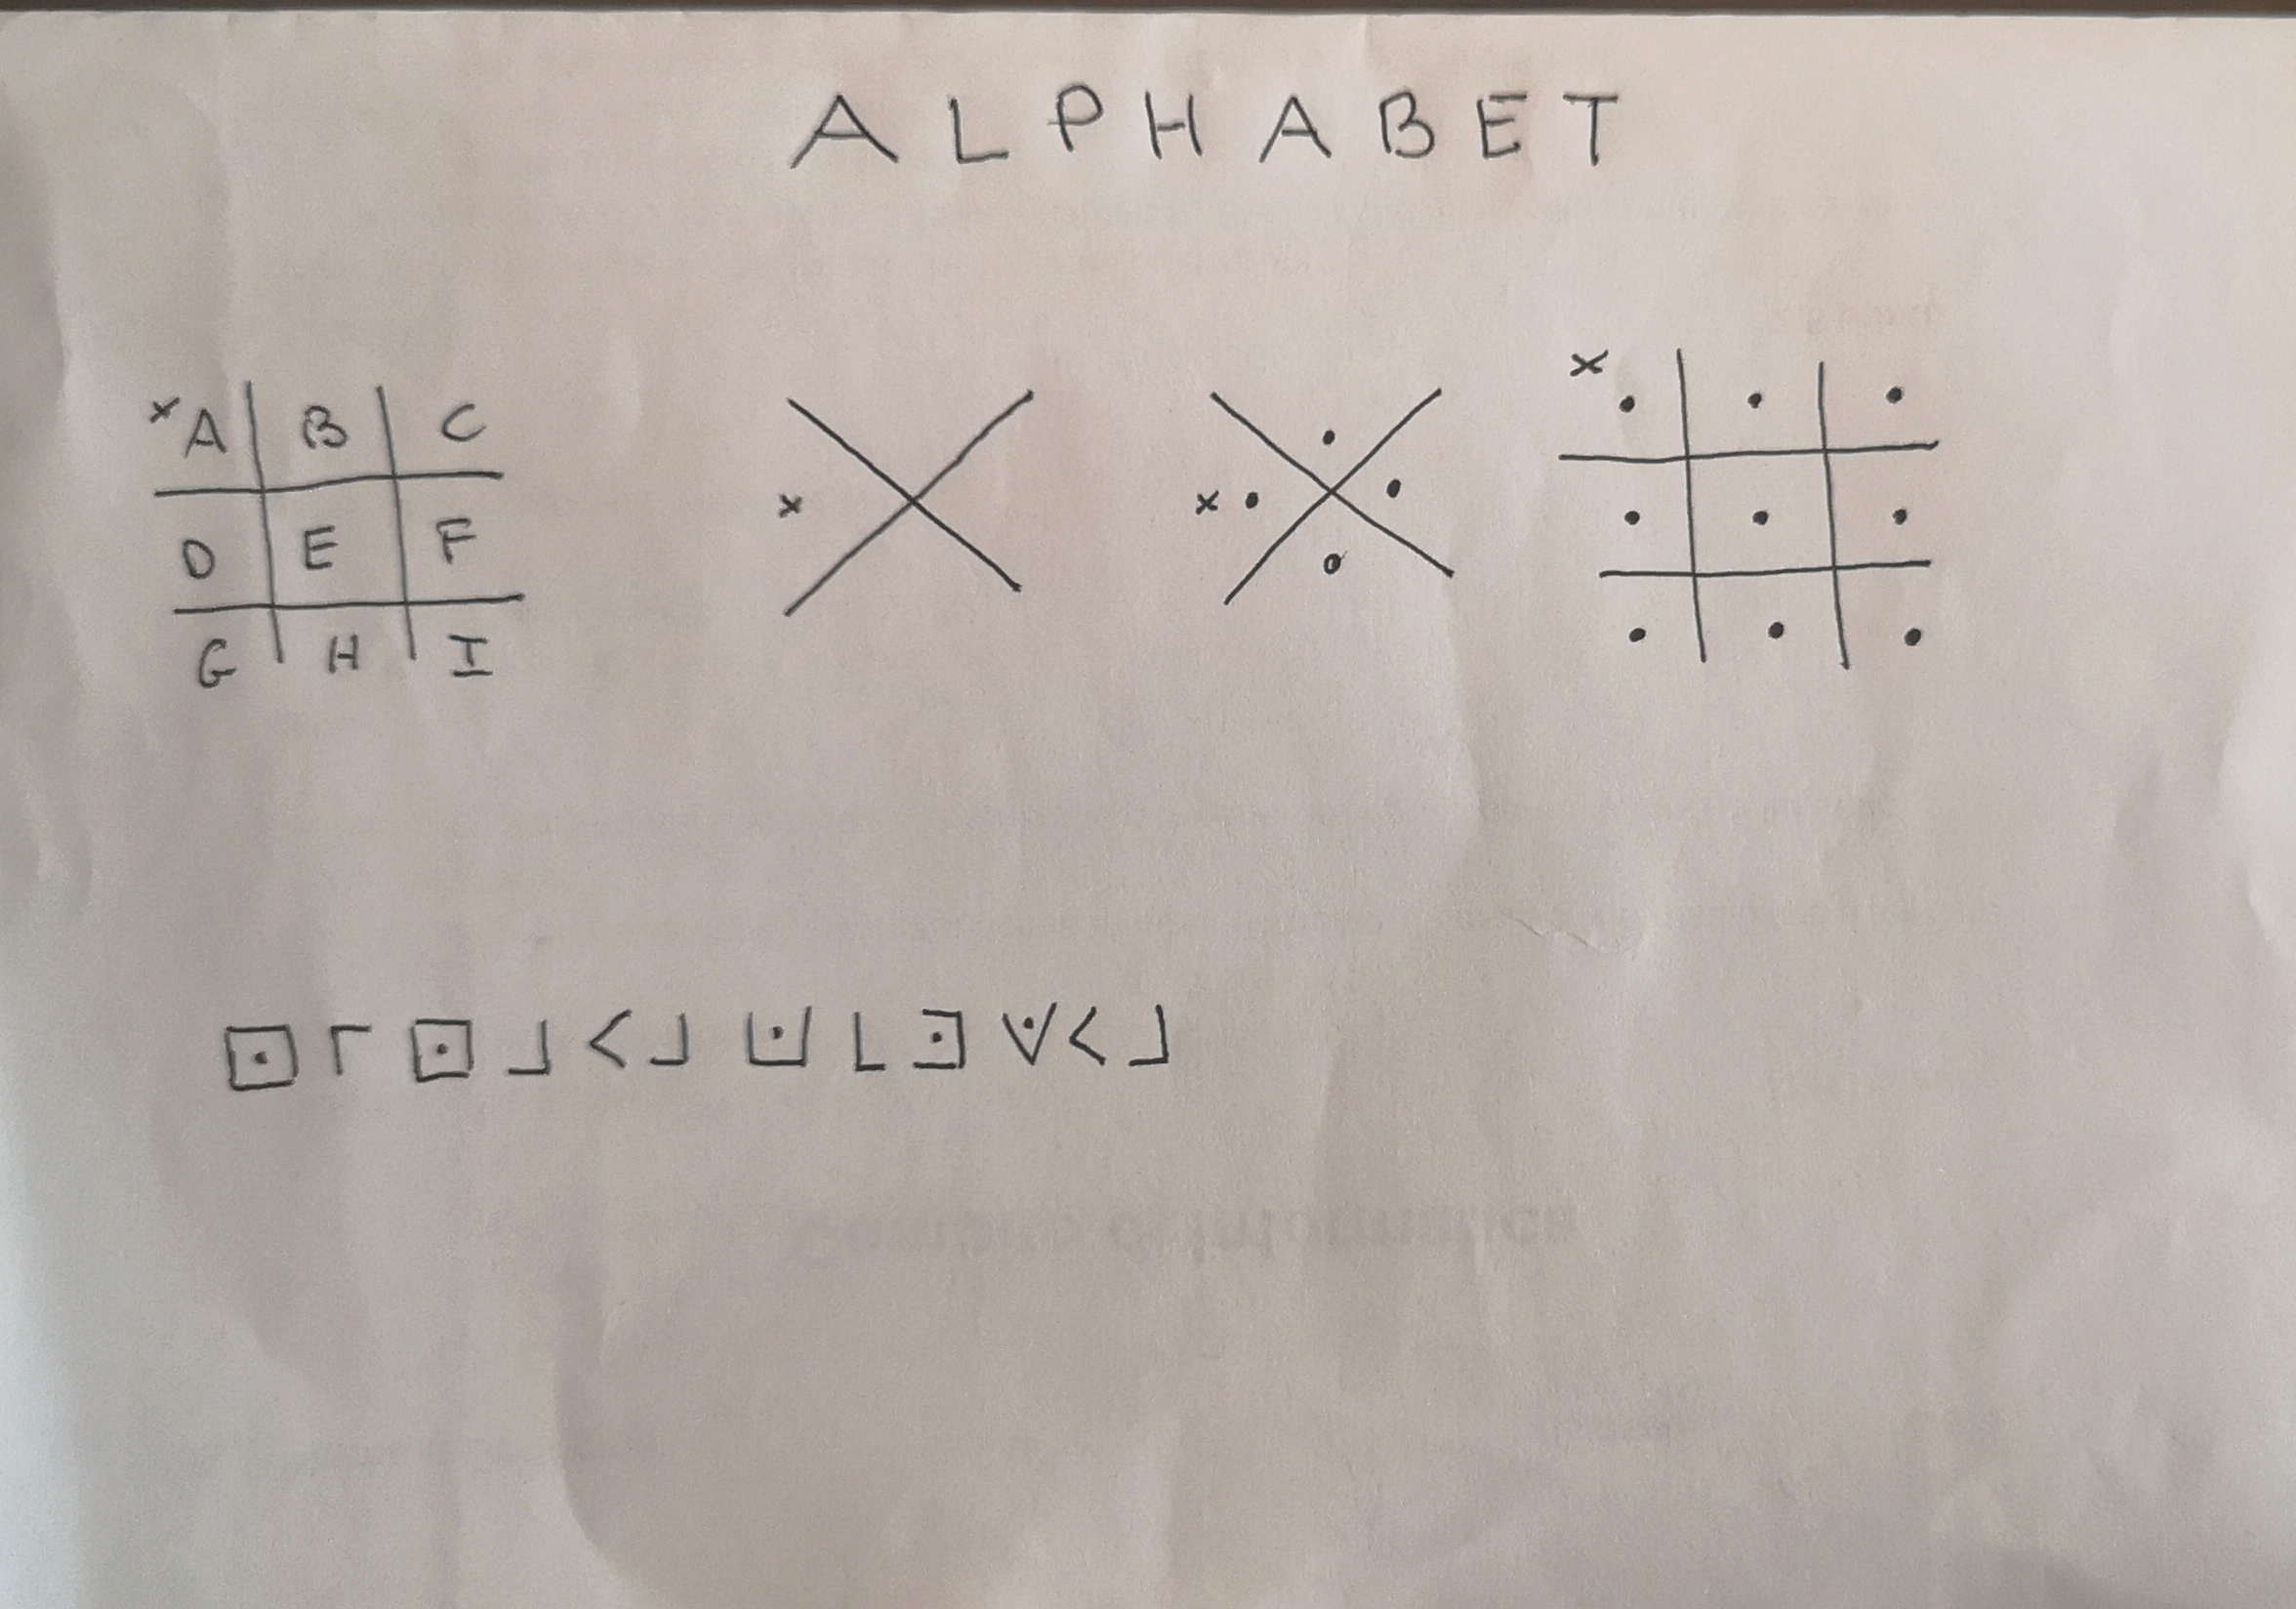 ALPHABET
× A B C × × • • • • × • • •
D E F • • •
G H I • • •
⊡ ┌ ⊡ ┘ < ┘ ⊔• └ ⊐• V• < ┘